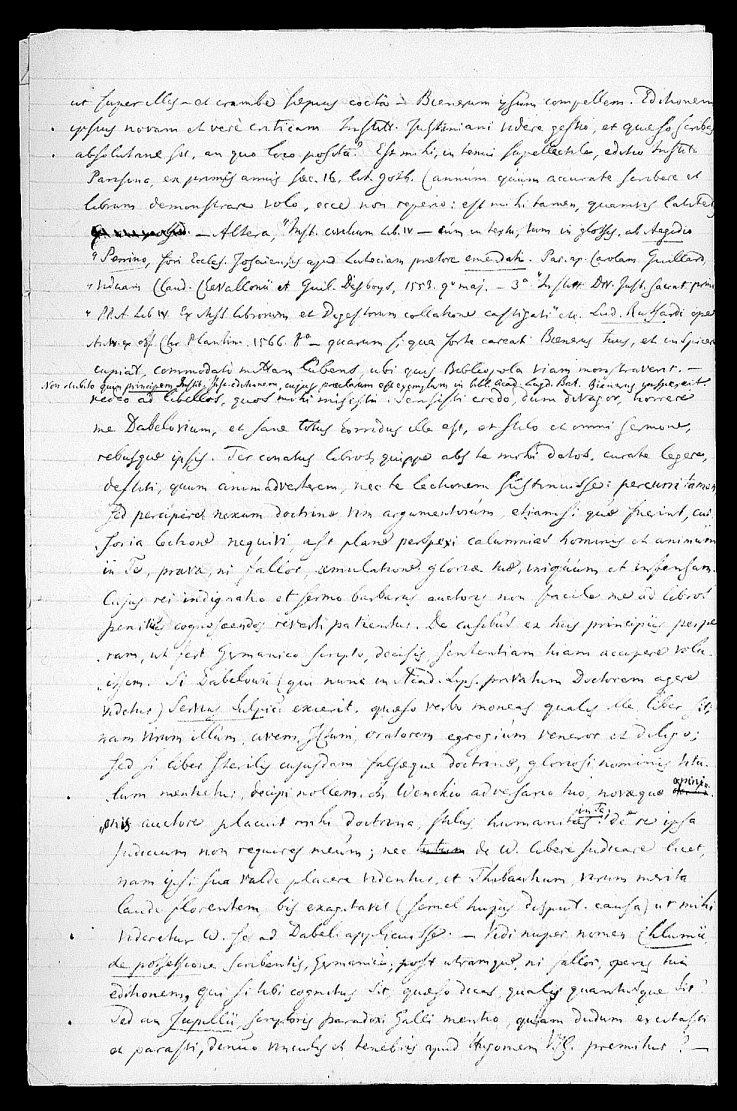 ut super illis – et crambe saepius cocta – Bienerum ipsum compellem. Editionem
ipsius novam et verè criticam Instit. Justiniani videre gestio, et quaeso scribas
absolutane sit, an quo loco posita? Est mihi, in tenui supellectile, editio Instit.
Parisina, ex primis annis saec. 16, lit. goth. (annum quum accurate scribere et
librum demonstrare volo, ecce non reperio: est mihi tamen, quamvis latitet)
– Altera, "Inst. civilium Lib. IV – cùm in textu, tum in glossis, ab Aegidio
" Perrino, fori Eccles. Josaiensis apud Lutetiam praetore emendati. Par. ap. Carolam Guillard,
" viduam Claud. Chevallonii et Guil. Desboys, 1553. 4° maj. – 3° "Institt. DN. Just. sacrat. princ.
" PP. A. Lib IV. Ex Inst. librorum et Digestorum collatione castigati" etc. Lud. Russardi opera
Antw. ex off. Chr. Plantini. 1566. 8° – quarum si qua forte careat Bienerus tuus, et inspicere
cupiat, commodati mittam lubens, ubi quis Bibliopola viam monstraverit. –
Non dubito quin principem Instit. Just. editionem, cujus praeclarum est exemplum in bibl. Acad. Lugd. Bat. Bienerus inspexerit.
redeo ad libellos, quos mihi misisti. Sensisti credo, dum divagor, horrere
me Dabelovium, et sane totus horridus ille est, et stilo et omni sermone,
rebusque ipsis. Ter conatus libros, quippe abs te mihi datos, curate legere,
destiti, quum animadverterem, nec te lectionem sustinuisse: percurri tamen
sed percipere nexum doctrinae, vim argumentorum, etiamsi quae fuerint, cur-
soria lectione nequivi, ast plane perspexi calumnias hominis et animum
in Te, prava, ni fallor, aemulatione gloriae tuae, iniquum et infensum.
Cujus rei indignatio et sermo barbarus auctoris non facile me ad libros
penitus cognoscendos reverti patientur. De casibus ex his principiis perpe-
ram, ut fert Germanico scripto, decisis sententiam tuam accipere velu-
issem. Si Dabelovii (qui nunc in Acad. Lips. privatum Doctorem agere
videtur) Servius Sulpic. exierit, quaeso verbo moneas qualis ille liber sit,
nam virum illum, civem, JCtum, oratorem egregium veneror et diligo;
sed si liber sterilis cujusdam falsaeque doctrinae, gloriosi nominis titu-
lum mentietur, decipi nollem. In Wenckio adversario tuo, novaeque opinio-
nis auctore placuit mihi doctrina, stilus, humanitas in Te: de re ipsa
judicium non requires meum; nec de W. libere judicare licet,
nam ipsi sua valde placere videntur, et Thibautium, virum merita
laude florentem, bis exagitavit (semel hujus disput. causa) ut mihi
videretur W. se ad Dabel. applicuisse. – Vidi nuper nomen Chlumii,
de possessione scribentis, Germanicè, post utramque, ni fallor, operis tui
editionem, qui si tibi cognitus sit, quaeso dicas, qualis quantusque sit?
Sed an Jupillii scriptoris paradoxi Galli mentio, quam dudum excitasti
et parasti, denuo vinculis et tenebris apud Hugonem V.C. premitur? –